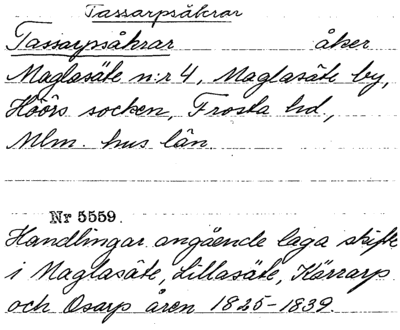 Tassarpsåkrar
Tassarpsåkrar åker
Maglasäte n:r 4, Maglasäte by,
Höörs socken, Frosta hd,
Mlm. hus län
Nr 5559.
Handlingar angående laga skifte
i Maglasäte, Lillasäte, Kärrarp
och Osarp åren 1825-1839.